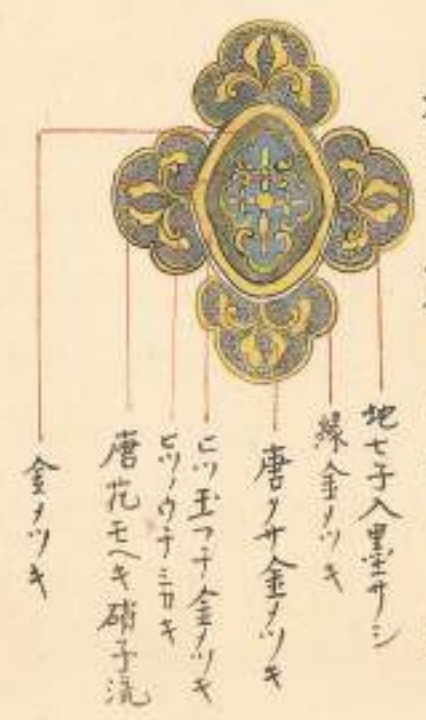 地七子入墨サシ
縁金メツキ
唐クサ金メツキ
ヒツ玉フチ金メツキ
ヒツノウチミカキ
唐花モヘキ硝子流
金メツキ